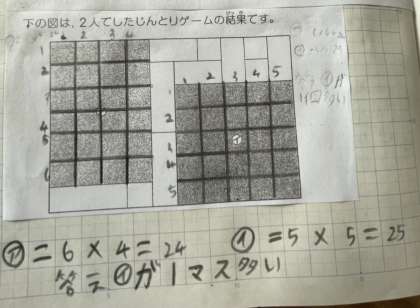 下の図は、2人でしたじんとりゲームの結果です。
1 2 3 4
1
2
3
4
5
6
1 2 3 4 5
1
2
3
4
5
㋐=6×4=24
㋑=5×5=25
答え ㋑が1マス多い